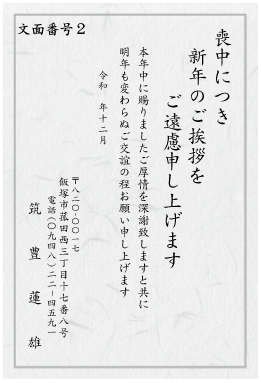 文面番号２
喪中につき
新年のご挨拶を
ご遠慮申し上げます
本年中に賜りましたご厚情を深謝致しますと共に
明年も変わらぬご交誼の程お願い申し上げます
令和　年十二月
〒八二〇-〇〇一七
飯塚市菰田西三丁目十七番八号
電話(〇九四八)二二-四五九一
筑豊蓮雄